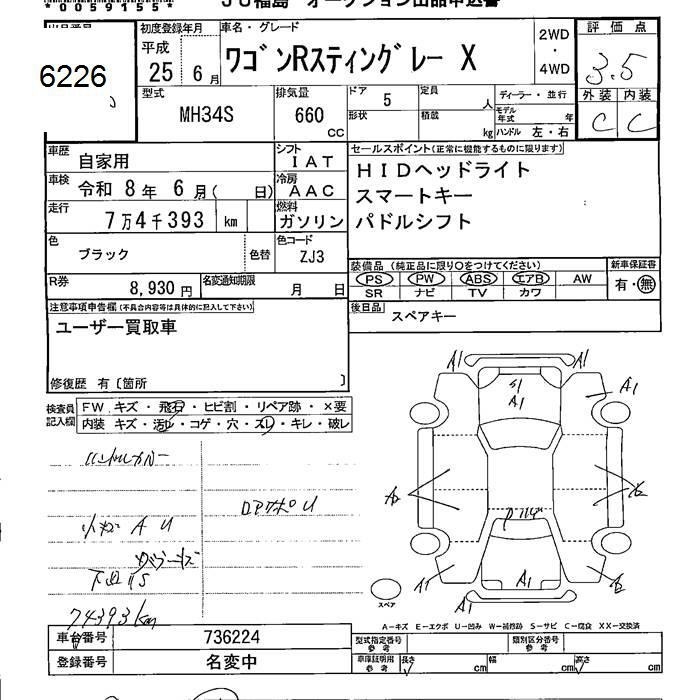 *0059155*
JU福島 オークション出品申込書
出品番号
6226
初度登録年月
平成
25 6月
車名・グレード
ワゴンRスティングレー X
2WD
・
4WD
評価点
3.5
型式
MH34S
排気量
660
CC
ドア 5
形状
定員 人
積載 kg
ディーラー・並行
モデル年式 年
ハンドル 左・右
外装 内装
C C
車歴 自家用
シフト IAT
車検 令和 8年 6月( 日)
冷房 AAC
走行 7万4千393 km
燃料 ガソリン
色 ブラック
色替
色コード ZJ3
R券 8,930円
名変通知期限 月 日
セールスポイント(正常に機能するものに限ります)
HIDヘッドライト
スマートキー
パドルシフト
装備品 (純正品に限り○をつけてください)
新車保証書
PS PW ABS エアB AW
SR ナビ TV カワ
有・無
後日品
スペアキー
注意事項申告欄(不具合内容等は具体的に記入して下さい)
ユーザー買取車
修復歴 有〔箇所 〕
検査員記入欄
FW キズ・飛石・ヒビ割・リペア跡・×要
内装 キズ・汚レ・コゲ・穴・スレ・キレ・破レ
ハンドルカバー
A U
下回りS
74393km
A1 A1
A1
A1
A1
A1
A1
スペア
A1
A-キズ E-エクボ U-凹み W-補修跡 S-サビ C-腐食 XX-交換済
車台番号 736224
登録番号 名変中
型式指定番号 参考
類別区分番号 参考
車庫証明用 参考
長さ cm
幅 cm
高さ cm